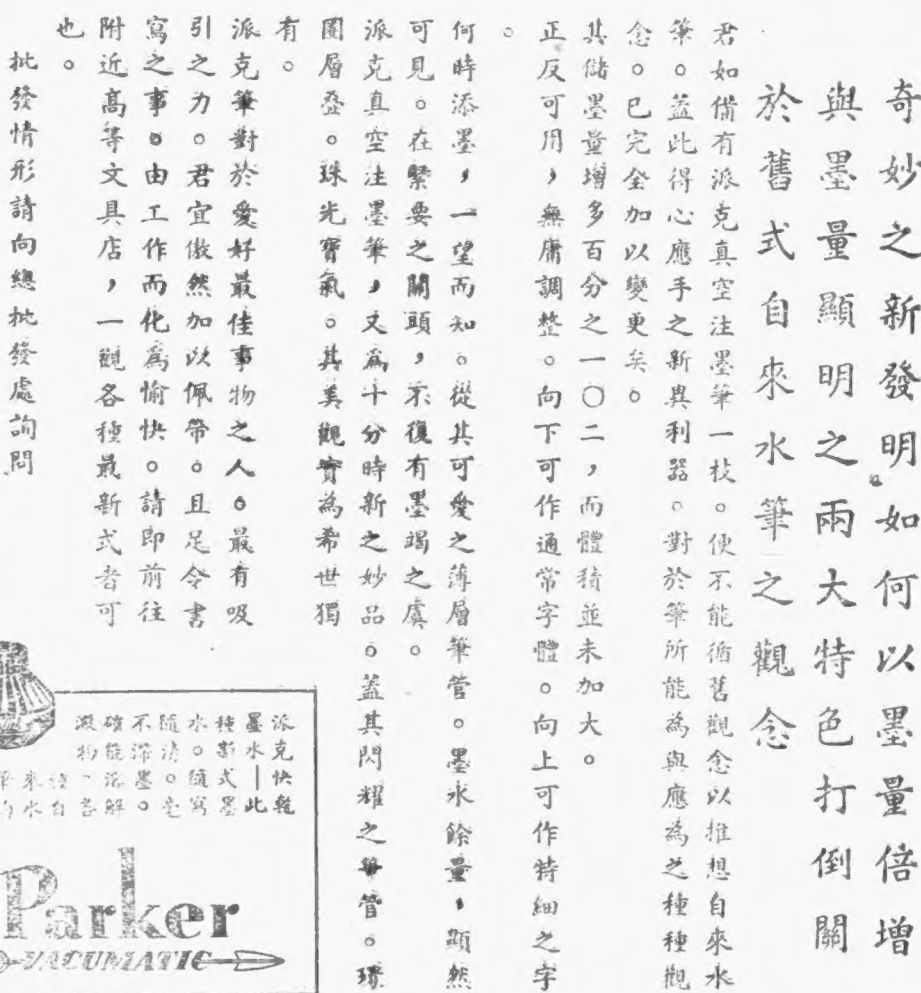 奇妙之新發明如何以墨量倍增
與墨量顯明之兩大特色打倒關
於舊式自來水筆之觀念
君如備有派克真空注墨筆一枝。便不能循舊觀念以推想自來水
筆。蓋此得心應手之新異利器。對於筆所能為與應為之種種觀
念。已完全加以變更矣。
其儲墨量增多百分之一〇二，而體積並未加大。
正反可用，無庸調整。向下可作通常字體。向上可作特細之字
。
何時添墨，一望而知。從其可愛之薄層筆管。墨水餘量，顯然
可見。在緊要之關頭，不復有墨竭之虞。
派克真空注墨筆，又為十分時新之妙品。蓋其閃耀之筆管。環
圈層疊。珠光寶氣。其美觀實為希世獨
有。
派克筆對於愛好最佳事物之人。最有吸
引之力。君宜傲然加以佩帶。且足令書
寫之事。由工作而化為愉快。請即前往
附近高等文具店，一觀各種最新式者可
也。
批發情形請向總批發處詢問
派克快乾
墨水—此
種新式墨
水。隨寫
隨清。毫
不滯墨。
確能溶解
澱物。各
自
來水
筆
Parker
VACUMATIC